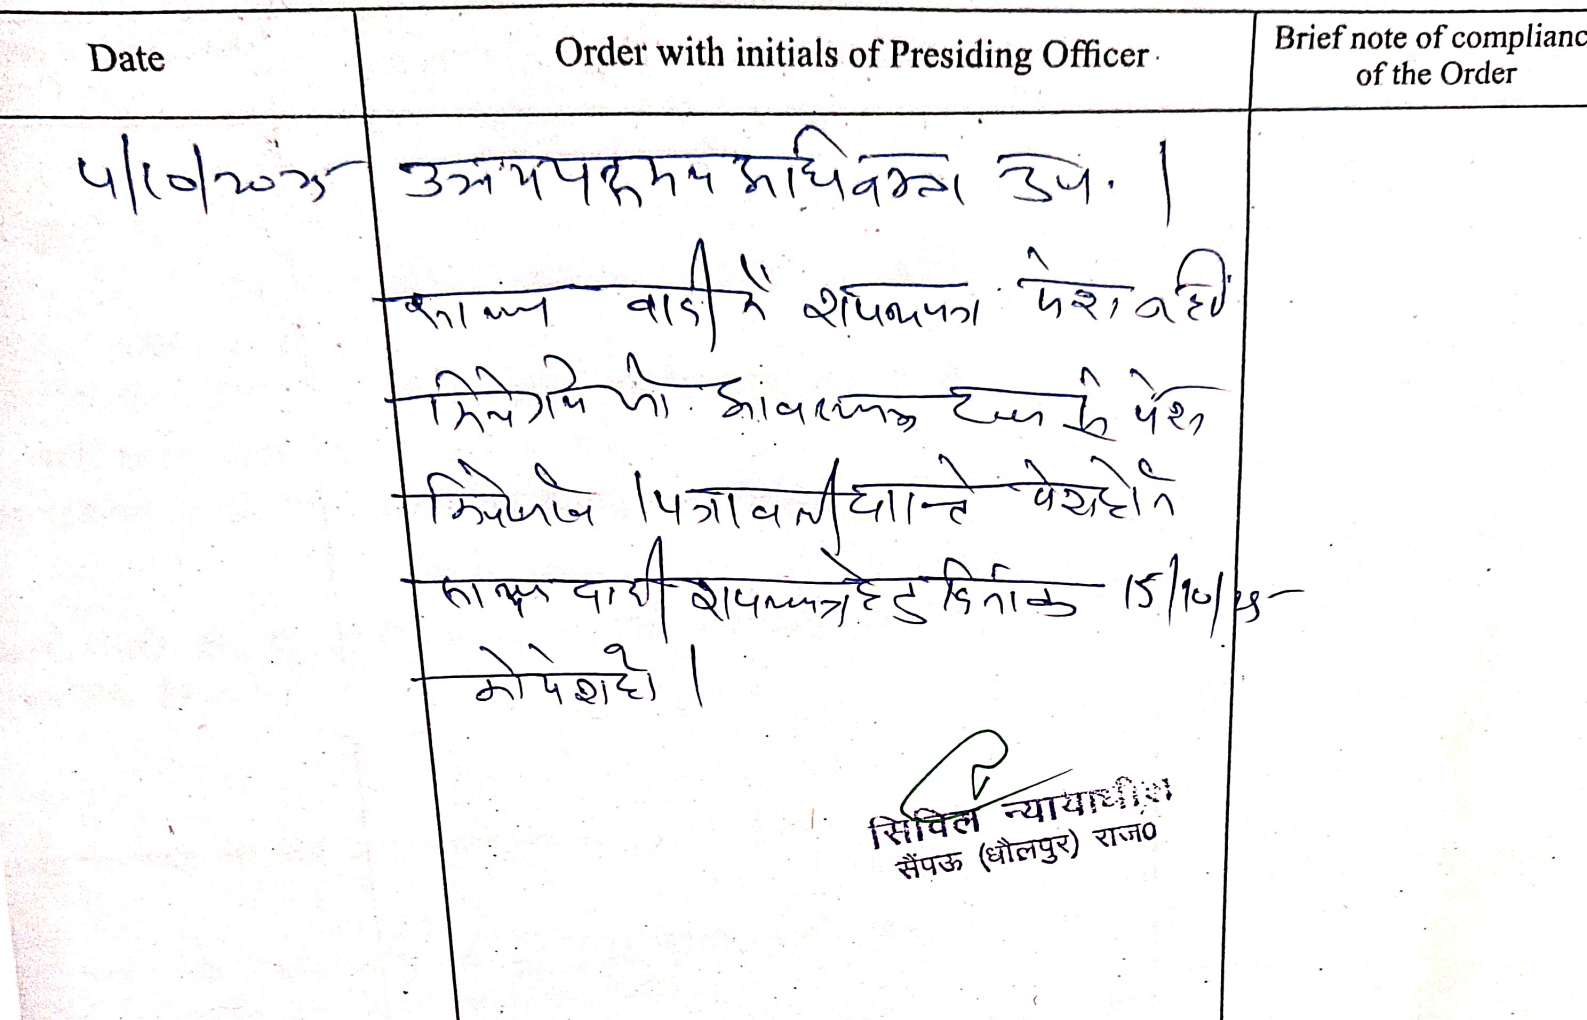 Date
Order with initials of Presiding Officer
Brief note of complianc
of the Order
4/10/2025 उभयपक्षमय अधिवक्ता उप. ।
साक्ष्य वादी में शपथपत्र पेश नहीं
किये गये जो आवश्यक रूप से पेश
किये जावे । पत्रावली वास्ते पेश होने
साक्ष्य वादी शपथपत्र हेतु दिनांक 15/10/25
को पेश हो ।
सिविल न्यायाधीश
सैंपऊ (धौलपुर) राज०